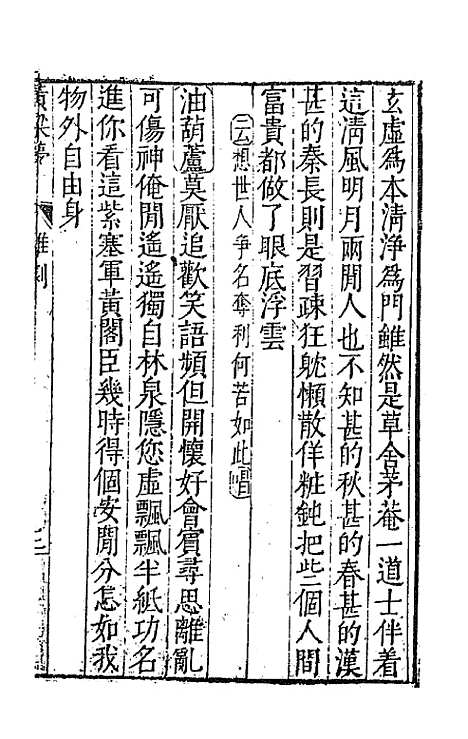 玄虛爲本清淨爲門雖然是草舍茅菴一道士伴着
這淸風明月兩閒人也不知甚的秋甚的春甚的漢
甚的秦長則是習疎狂躭懶散佯粧鈍把些個人間
富貴都做了眼底浮雲
云想世人爭名奪利何苦如此唱
油葫蘆莫厭追歡笑語頻但開懷好會賓尋思離亂
可傷神俺閒遙遙獨自林泉隱您虛飄飄半紙功名
進你看這紫塞軍黃閣臣幾時得個安閒分怎如我
物外自由身
黃粱夢
雜劇